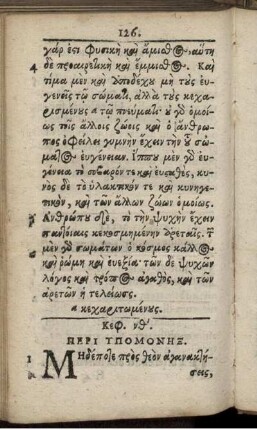 126.
γάρ ἐστι φυσικὴ καὶ ἄμισθος· αὕτη
4 δὲ προαιρετικὴ καὶ ἔμμισθος. Καὶ
τίμα μὲν καὶ ὑποδέχου μὴ τοὺς εὐ-
γενεῖς τῷ σώματι, ἀλλὰ τοὺς κεχα-
ρισμένους α τῷ πνεύματι· οὐ γὰρ ὁμοί-
ως τοῖς ἄλλοις ζώοις καὶ ὁ ἄνθρω-
πος ὀφείλει γυμνὴν ἔχειν τὴν τοῦ σώ-
ματος εὐγένειαν. Ἵππου μὲν γὰρ εὐ-
γένεια τὸ καὶ εὐσταθὲς, κυ-
νὸς δὲ τὸ ὑλακτικόν τε καὶ κυνηγε-
τικὸν, καὶ τῶν ἄλλων ζώων ὁμοίως.
Ἀνθρώπου δὲ, τὸ τὴν ψυχὴν ἔχειν
παντοίαις κεκοσμημένην ἀρεταῖς. τῶν
μὲν γὰρ σωμάτων ὁ κόσμος κάλλος
καὶ ῥώμη καὶ εὐεξία· τῶν δὲ ψυχῶν
λόγος καὶ τρόπος ἀγαθὸς, καὶ τῶν
ἀρετῶν ἡ τελείωσις.
α κεχαριτωμένους.
Κεφ. νθʹ.
ΠΕΡΙ ΥΠΟΜΟΝΗΣ.
1 Μηδέποτε πρὸς θεὸν ἀγανακτή-
σεις,